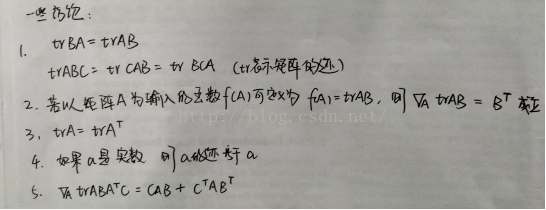 一些结论:
1. trBA = trAB
trABC = trCAB = trBCA (tr表示矩阵的迹)
2. 若以矩阵A为输入的函数f(A)可定义为 f(A)=trAB, 则 ∇A trAB = B^T 成立
http://blog.csdn.net/
3. trA = trA^T
4. 如果a是实数 则a的迹等于a
5. ∇A trABA^TC = CAB + C^TAB^T